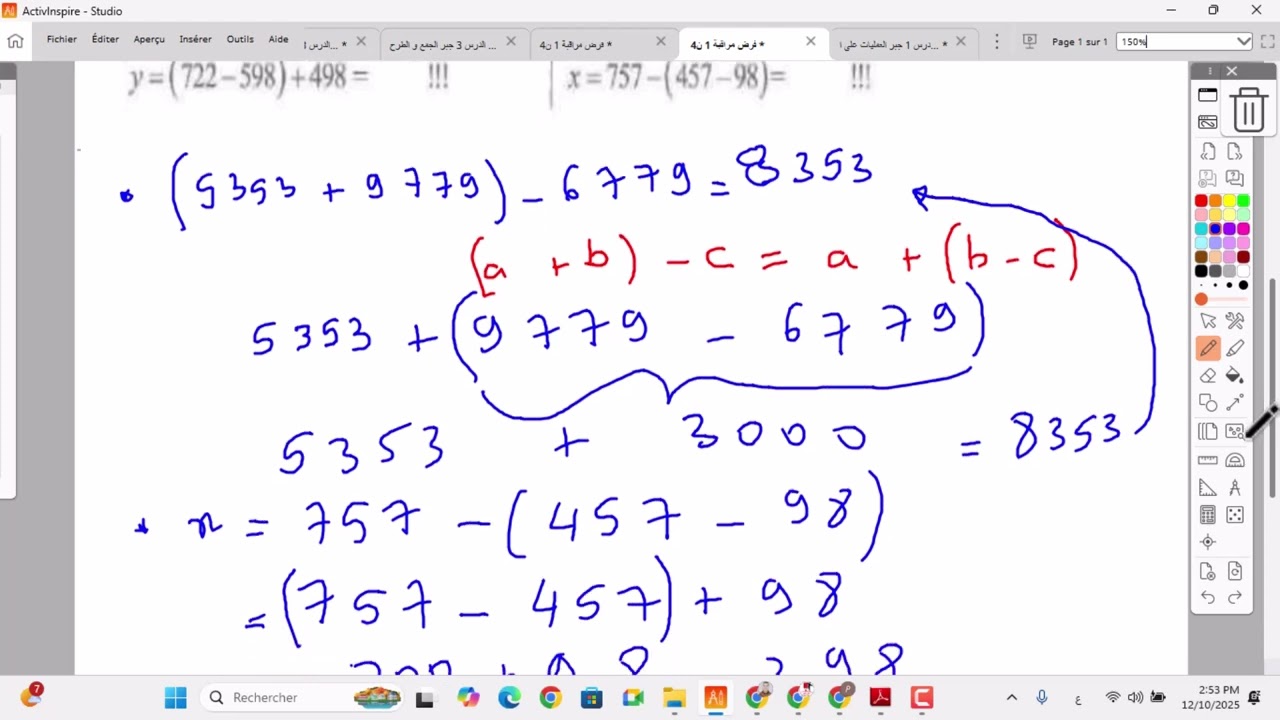 ActivInspire - Studio
Fichier Éditer Aperçu Insérer Outils Aide
... الدرس 3 جبر الجمع و الطرح
فرض مراقبة 1 ن4 *
فرض مراقبة 1 ن4 *
* ...درس 1 جبر العمليات علي ا
Page 1 sur 1
150%
y=(722-598)+498= !!! x=757-(457-98)= !!!
• (5353 + 9779) - 6779 = 8353
(a + b) - c = a + (b - c)
5353 + (9779 - 6779)
5353 + 3000 = 8353
* x = 757 - (457 - 98)
= (757 - 457) + 98
7
Rechercher
ع
2:53 PM
12/10/2025